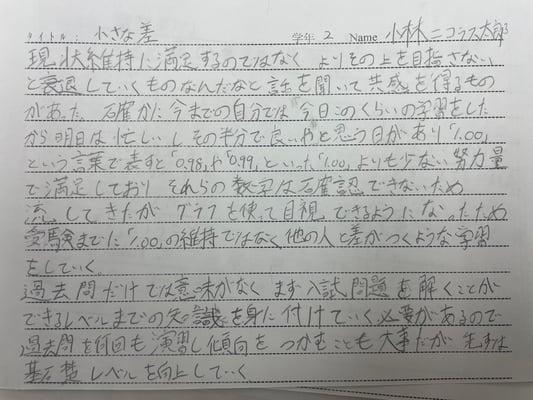 タイトル: 小さな差 学年 2 Name 小林ニコラス太郎
現状維持に満足するのではなく よりその上を目指さない
と衰退していくものなんだなと話を聞いて共感を得るもの
があった。確かに今までの自分では「今日このくらいの学習をした
から明日は忙しいしその半分で良いや」と思う日があり「1.00」
という言葉で表すと「0.98」や「0.99」といった「1.00」よりも少ない努力量
で満足しており それらの数字は確認できないため
流してきたが グラフを使って目視できるようになったため
受験までに「1.00」の維持ではなく他の人と差がつくような学習
をしていく。
過去問だけでは意味がなく まず入試問題を解くことが
できるレベルまでの知識を身に付けていく必要があるので
過去問を何回も演習し傾向をつかむことも大事だが まずは
基礎レベルを向上していく